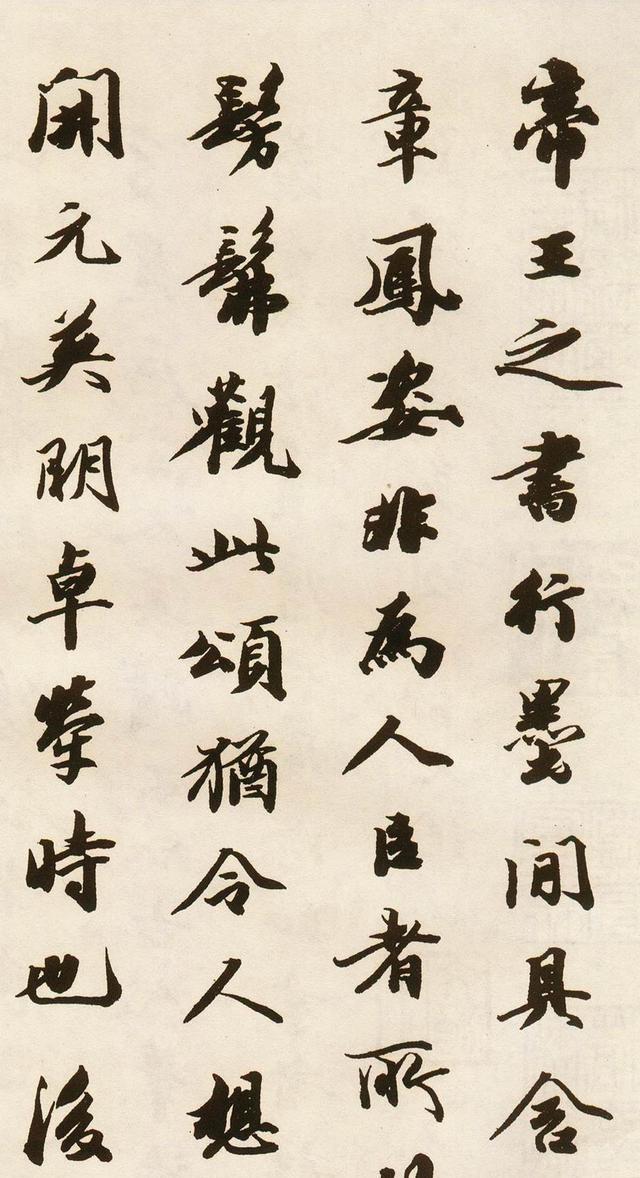 帝王之書行墨間具含
章鳳姿非為人臣者所
髣髴觀此頌猶令人想
開元英明卓犖時也後